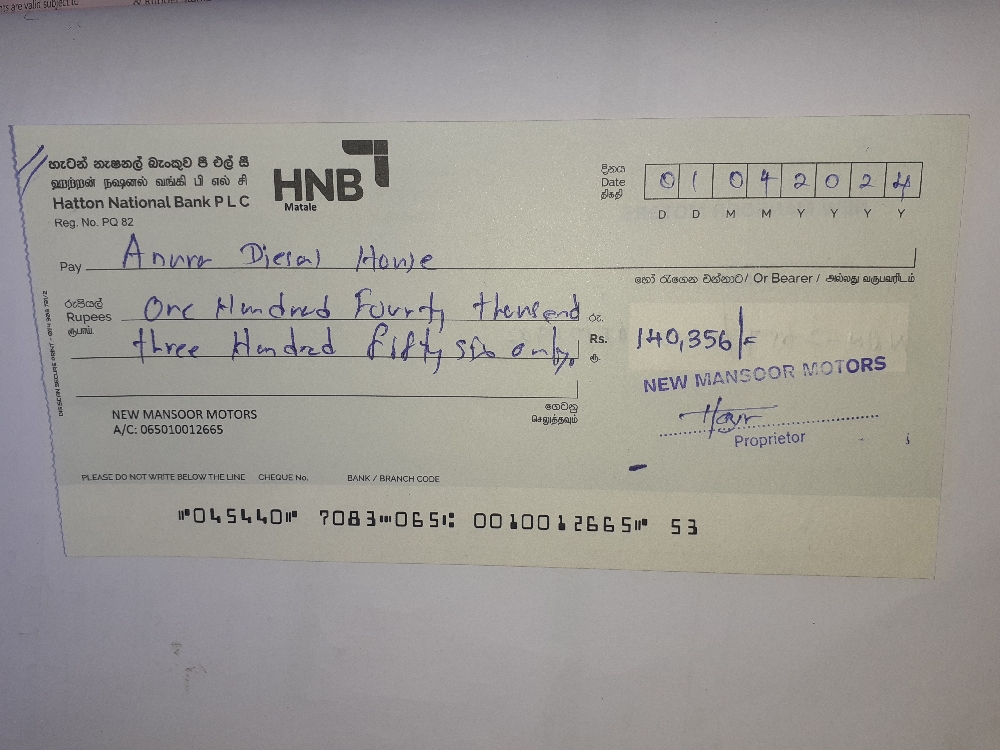 nts are valid subject to
හැටන් නැෂනල් බැංකුව පී එල් සී
ஹற்றன் நஷனல் வங்கி பி எல் சி
Hatton National Bank P L C
Reg. No. PQ 82
HNB
Matale
දිනය
Date
திகதி
0 1 0 4 2 0 2 4
D D M M Y Y Y Y
Pay Anura Diesal House
හෝ රැගෙන එන්නාට/ Or Bearer / அல்லது வருபவரிடம்
රුපියල්
Rupees
ரூபாய்
One Hundred Fourty thousend
three Hundred fifty six only
රු.
Rs.
ரூ.
140,356/=
NEW MANSOOR MOTORS
Proprietor
ගෙවනු
செலுத்தவும்
NEW MANSOOR MOTORS
A/C: 065010012665
PLEASE DO NOT WRITE BELOW THE LINE CHEQUE No. BANK / BRANCH CODE
⑈045440⑈ 7083⑉065⑆ 0010012665⑈ 53